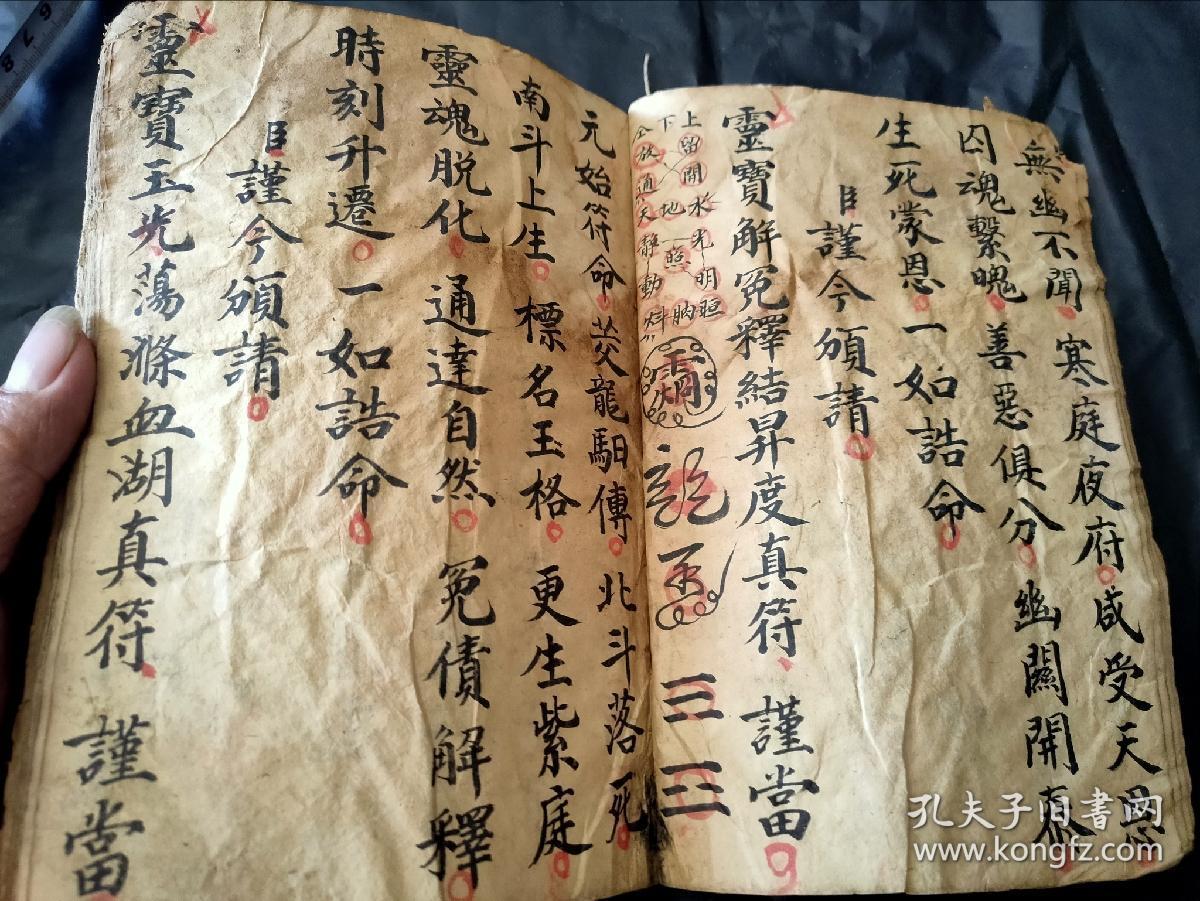 無幽不聞寒庭夜府咸受天恩
囚魂繫魄善惡俱分幽關開泰
生死蒙恩一如誥命
臣謹今頒請
靈寶解冤釋結昇度真符謹當
上留開水光明
下地一照
放通天静動
三三
元始符命龍馹傳北斗落死
南斗上生標名玉格更生紫庭
靈魂脱化通達自然冤債解釋
時刻升遷一如誥命
臣謹今頒請
靈寶玉光蕩滌血湖真符謹當
孔夫子旧書网
www.kongfz.com
6
8